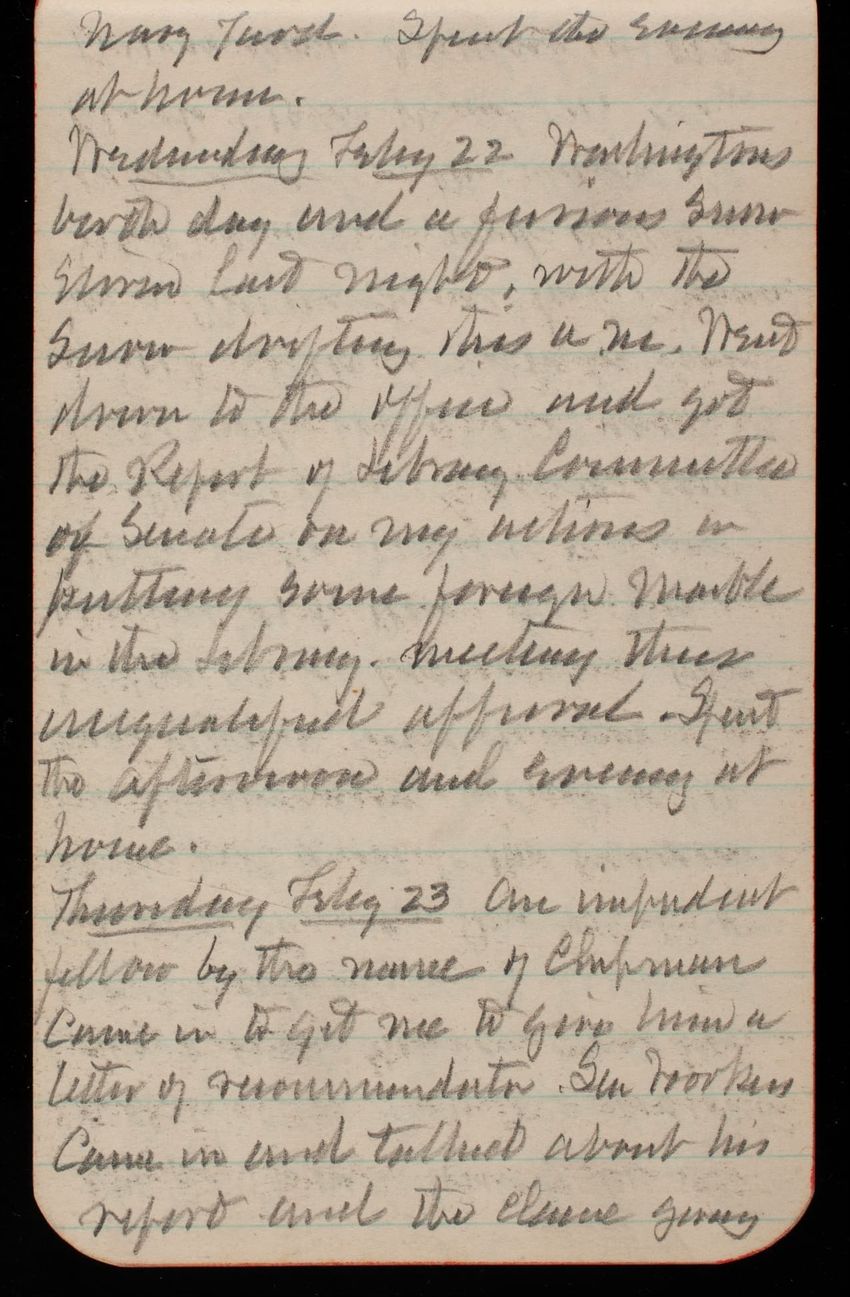 Navy Yard. Spent the evening
at home.
Wednesday Feby 22 Washingtons
birth day and a furious Snow
Storm last night, with the
Snow drifting this a.m. Went
down to the office and got
the Report of Library Committee
of Senate on my actions in
putting some foreign Marble
in the Library. meeting their
unqualified approval. Spent
the afternoon and evening at
home.
Thursday Feby 23 An impudent
fellow by the name of Chipman
Came in to get me to give him a
letter of recommendation. Sen Voorhees
Came in and talked about his
report and the clause giving